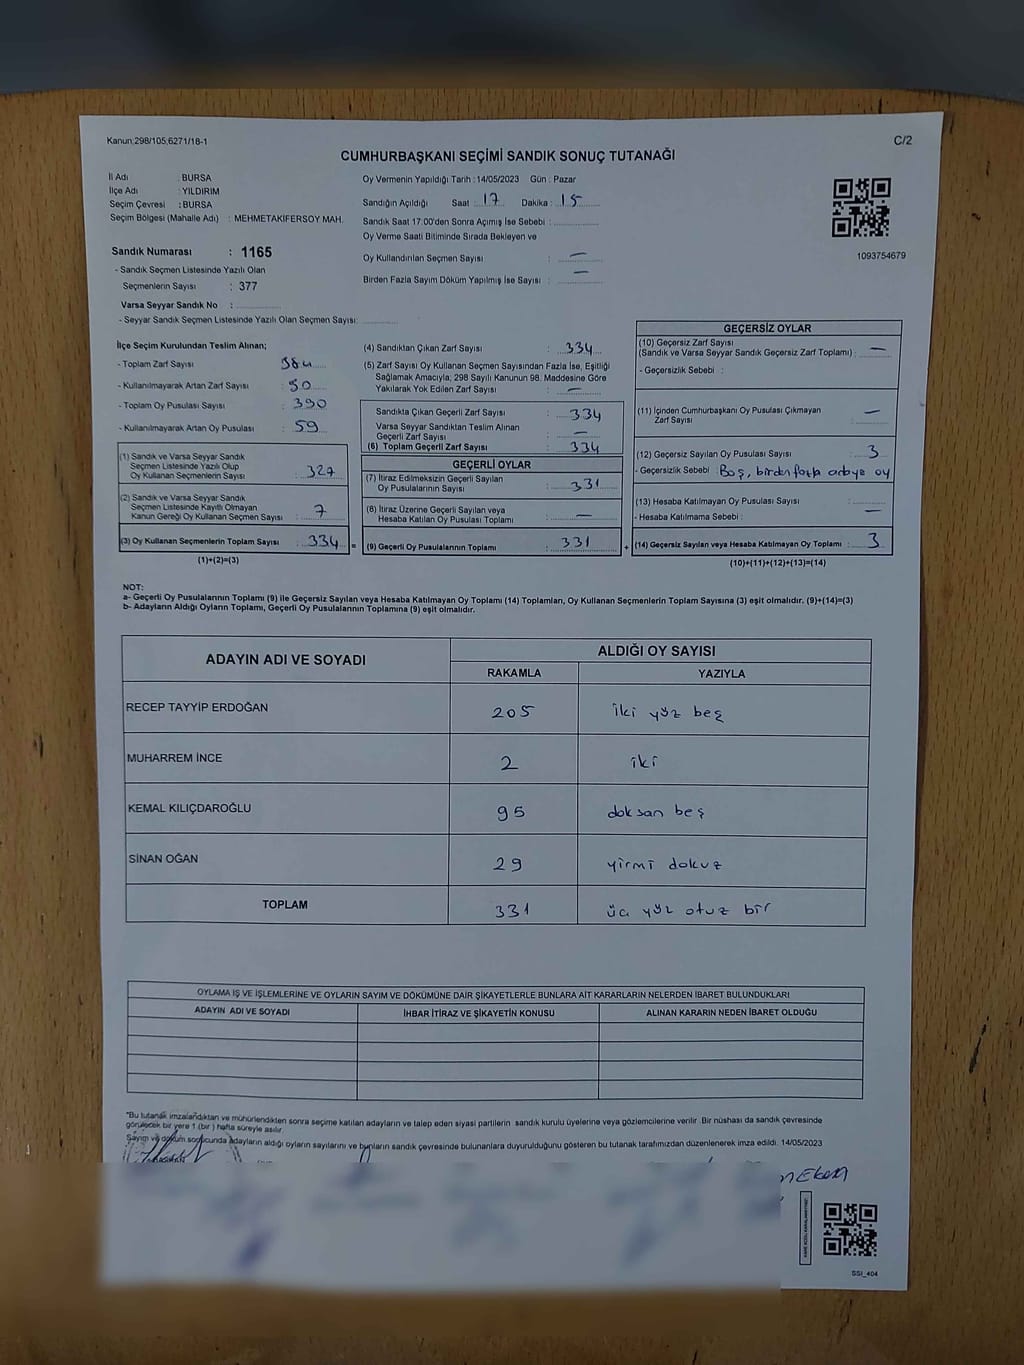 Kanun;298/105,6271/18-1
C/2
CUMHURBAŞKANI SEÇİMİ SANDIK SONUÇ TUTANAĞI
İl Adı : BURSA
İlçe Adı : YILDIRIM
Seçim Çevresi : BURSA
Seçim Bölgesi (Mahalle Adı) : MEHMETAKİFERSOY MAH.
Sandık Numarası : 1165
- Sandık Seçmen Listesinde Yazılı Olan
Seçmenlerin Sayısı : 377
Varsa Seyyar Sandık No :
- Seyyar Sandık Seçmen Listesinde Yazılı Olan Seçmen Sayısı:
Oy Vermenin Yapıldığı Tarih : 14/05/2023 Gün : Pazar
Sandığın Açıldığı Saat : 17 Dakika : 15
Sandık Saat 17:00'den Sonra Açımış İse Sebebi :
Oy Verme Saati Bitiminde Sırada Bekleyen ve
Oy Kullandırılan Seçmen Sayısı : —
Birden Fazla Sayım Döküm Yapılmış İse Sayısı : —
1093754679
İlçe Seçim Kurulundan Teslim Alınan;
- Toplam Zarf Sayısı : 384
- Kullanılmayarak Artan Zarf Sayısı : 50
- Toplam Oy Pusulası Sayısı : 390
- Kullanılmayarak Artan Oy Pusulası : 59
(1) Sandık ve Varsa Seyyar Sandık
Seçmen Listesinde Yazılı Olup
Oy Kullanan Seçmenlerin Sayısı : 327
(2) Sandık ve Varsa Seyyar Sandık
Seçmen Listesinde Kayıtlı Olmayan
Kanun Gereği Oy Kullanan Seçmen Sayısı : 7
(3) Oy Kullanan Seçmenlerin Toplam Sayısı : 334 =
(1)+(2)=(3)
(4) Sandıktan Çıkan Zarf Sayısı : 334
(5) Zarf Sayısı Oy Kullanan Seçmen Sayısından Fazla İse, Eşitliği
Sağlamak Amacıyla, 298 Sayılı Kanunun 98. Maddesine Göre
Yakılarak Yok Edilen Zarf Sayısı : —
Sandıkta Çıkan Geçerli Zarf Sayısı : 334
Varsa Seyyar Sandıktan Teslim Alınan
Geçerli Zarf Sayısı : —
(6) Toplam Geçerli Zarf Sayısı : 334
GEÇERLİ OYLAR
(7) İtiraz Edilmeksizin Geçerli Sayılan
Oy Pusulalarının Sayısı : 331
(8) İtiraz Üzerine Geçerli Sayılan veya
Hesaba Katılan Oy Pusulası Toplamı : —
(9) Geçerli Oy Pusulalarının Toplamı : 331 +
GEÇERSİZ OYLAR
(10) Geçersiz Zarf Sayısı
(Sandık ve Varsa Seyyar Sandık Geçersiz Zarf Toplamı) : —
- Geçersizlik Sebebi :
(11) İçinden Cumhurbaşkanı Oy Pusulası Çıkmayan
Zarf Sayısı : —
(12) Geçersiz Sayılan Oy Pusulası Sayısı : 3
- Geçersizlik Sebebi : Boş, birden fazla adaya oy
(13) Hesaba Katılmayan Oy Pusulası Sayısı :
- Hesaba Katılmama Sebebi : —
(14) Geçersiz Sayılan veya Hesaba Katılmayan Oy Toplamı : 3
(10)+(11)+(12)+(13)=(14)
NOT:
a- Geçerli Oy Pusulalarının Toplamı (9) ile Geçersiz Sayılan veya Hesaba Katılmayan Oy Toplamı (14) Toplamları, Oy Kullanan Seçmenlerin Toplam Sayısına (3) eşit olmalıdır. (9)+(14)=(3)
b- Adayların Aldığı Oyların Toplamı, Geçerli Oy Pusulalarının Toplamına (9) eşit olmalıdır.
ADAYIN ADI VE SOYADI
ALDIĞI OY SAYISI
RAKAMLA YAZIYLA
RECEP TAYYİP ERDOĞAN 205 iki yüz beş
MUHARREM İNCE 2 iki
KEMAL KILIÇDAROĞLU 95 doksan beş
SİNAN OĞAN 29 yirmi dokuz
TOPLAM 331 üç yüz otuz bir
OYLAMA İŞ VE İŞLEMLERİNE VE OYLARIN SAYIM VE DÖKÜMÜNE DAİR ŞİKAYETLERLE BUNLARA AİT KARARLARIN NELERDEN İBARET BULUNDUKLARI
ADAYIN ADI VE SOYADI İHBAR İTİRAZ VE ŞİKAYETİN KONUSU ALINAN KARARIN NEDEN İBARET OLDUĞU
*Bu tutanak imzalandıktan ve mühürlendikten sonra seçime katılan adayların ve talep eden siyasi partilerin sandık kurulu üyelerine veya gözlemcilerine verilir. Bir nüshası da sandık çevresinde
görülecek bir yere 1 (bir) hafta süreyle asılır.
Sayım ve döküm sonucunda adayların aldığı oyların sayılarını ve bunların sandık çevresinde bulunanlara duyurulduğunu gösteren bu tutanak tarafımızdan düzenlenerek imza edildi. 14/05/2023
SSI_404